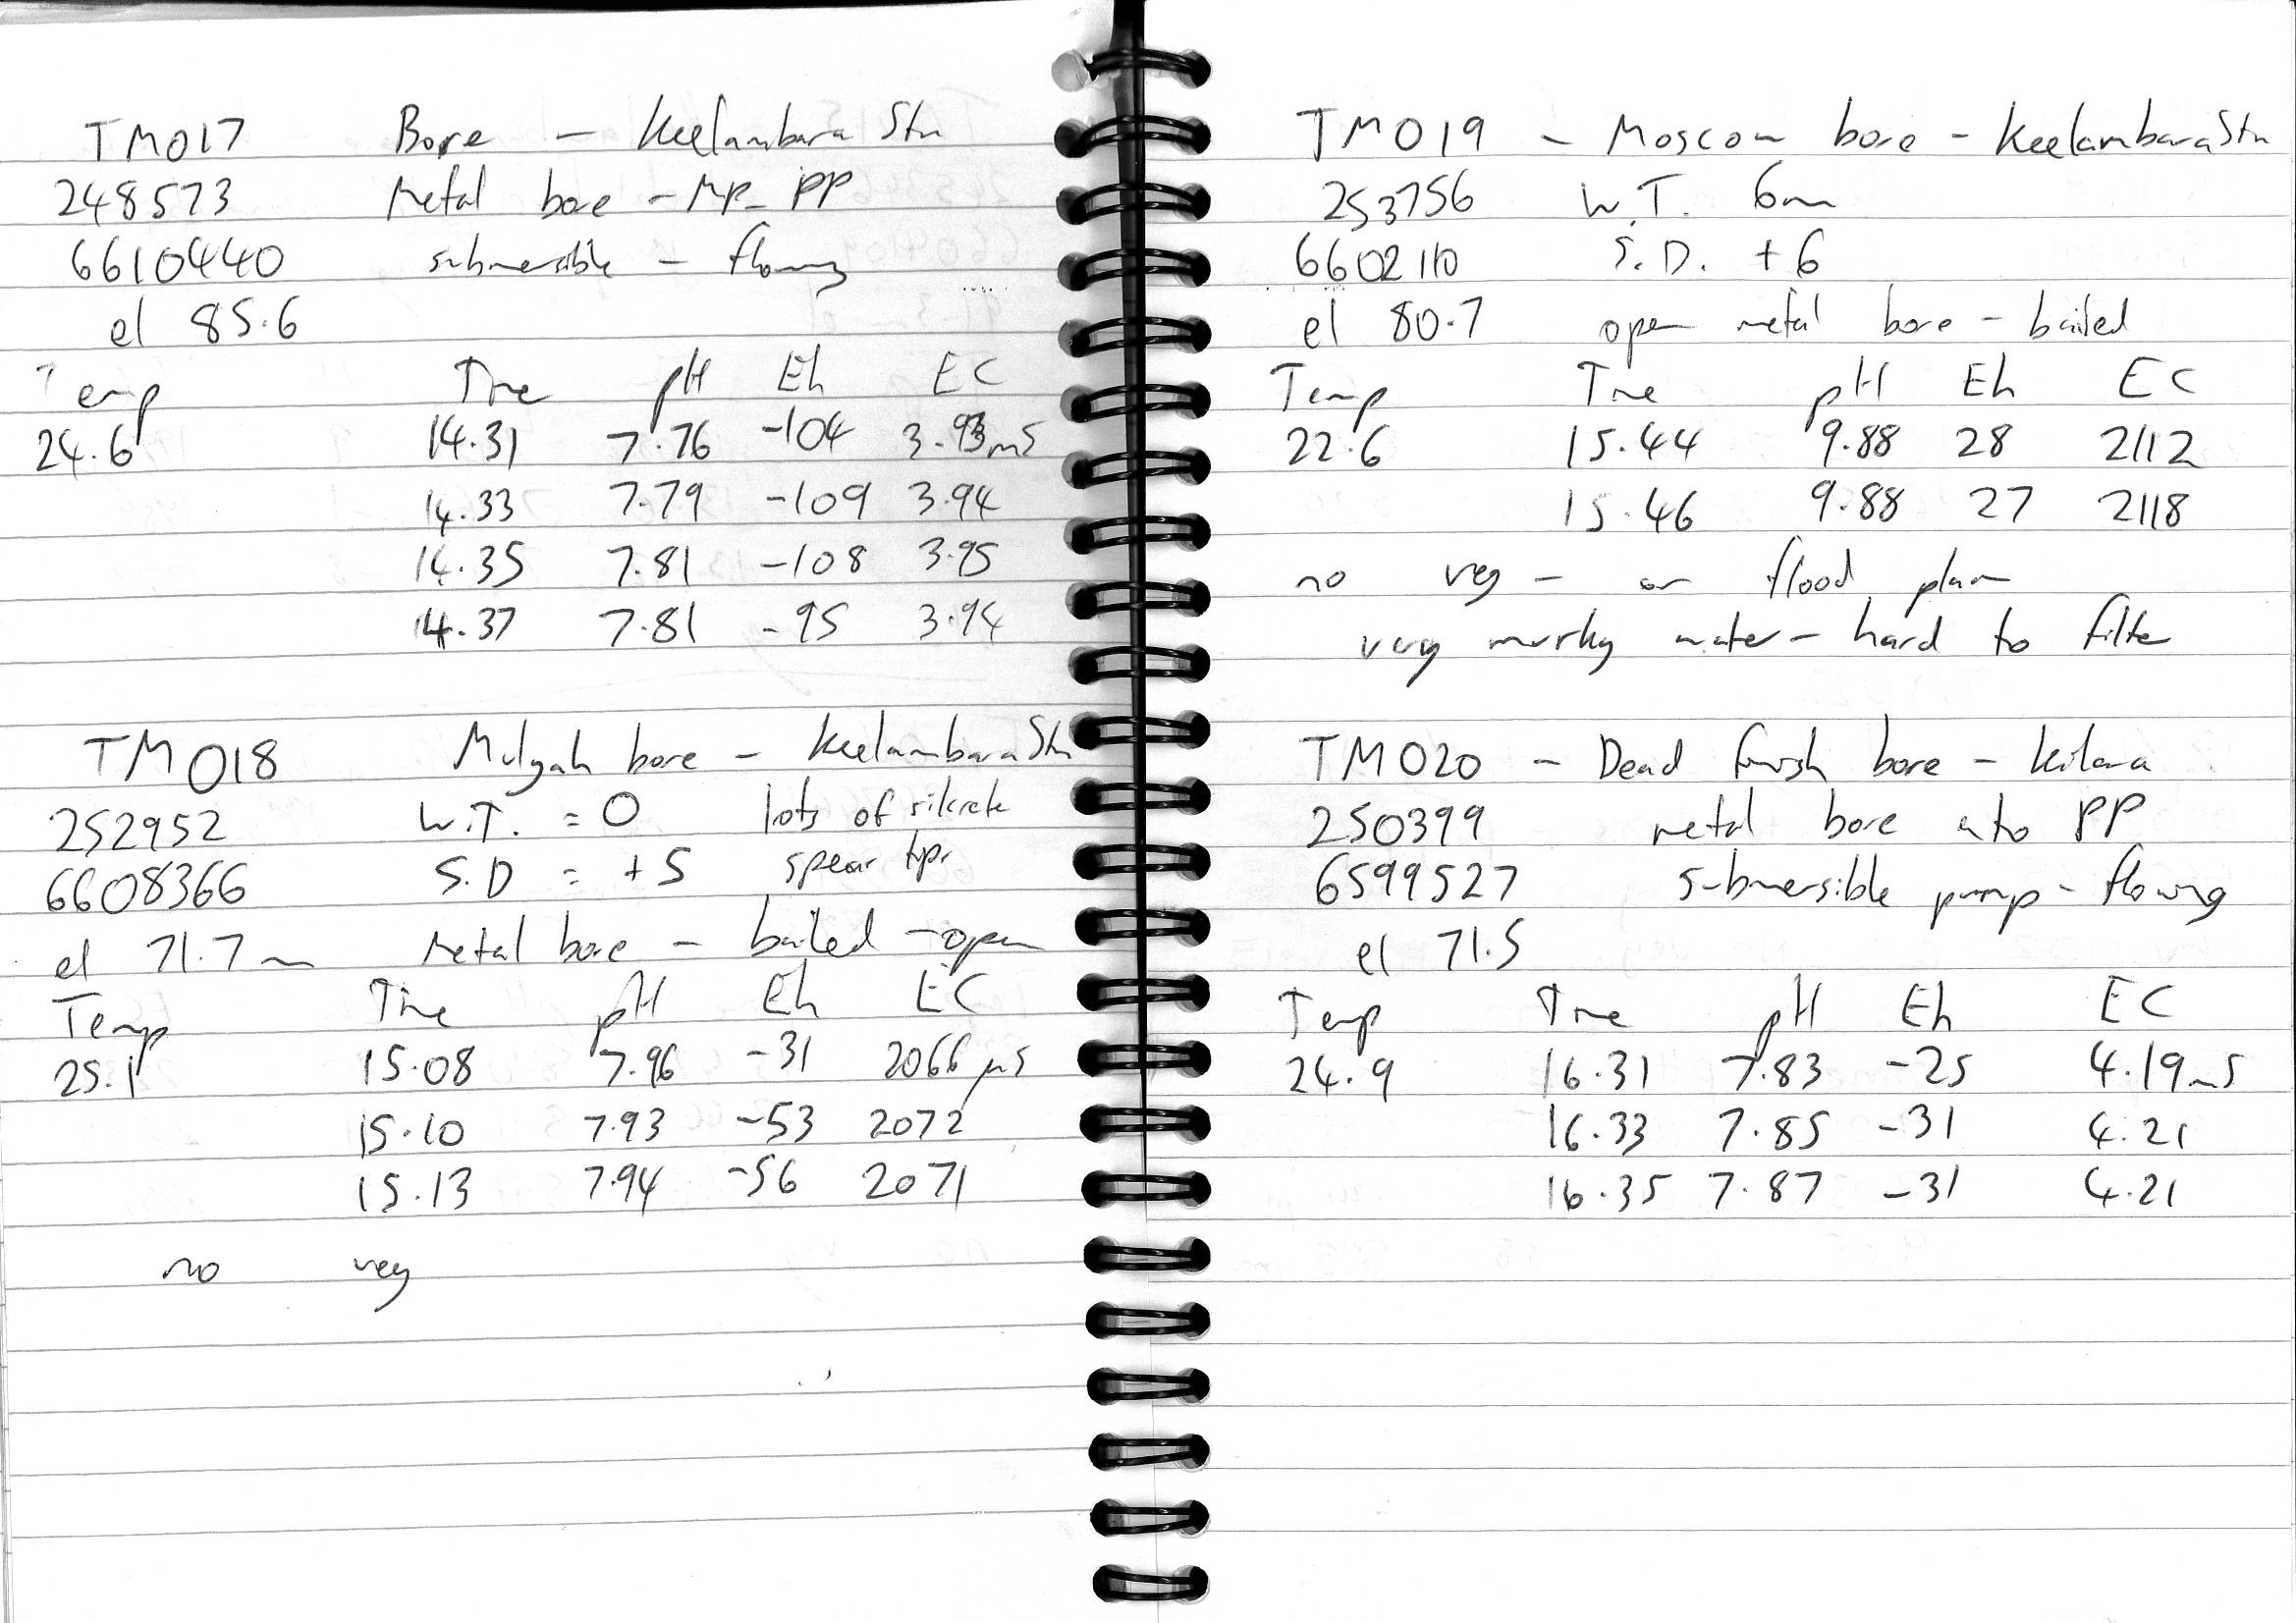 TM017 Bore - Keelambara Stn
248573 Metal bore - MP- PP
6610440 submersible - flowing
el 85.6
Temp Time pH Eh EC
24.6 14.31 7.76 -104 3.93mS
14.33 7.79 -109 3.94
14.35 7.81 -108 3.95
14.37 7.81 -95 3.94
TM018 Mulgah bore - Keelambara Stn
252952 W.T. = 0 lots of silcrete
6608366 S.D = +5 spear tips
el 71.7m Metal bore - bailed - open
Temp Time pH Eh EC
25.1 15.08 7.96 -31 2066 µS
15.10 7.93 -53 2072
15.13 7.94 -56 2071
no veg
TM019 - Moscow bore - Keelambara Stn
253756 W.T. 6m
6602110 S.D. +6
el 80.7 open metal bore - bailed
Temp Time pH Eh EC
22.6 15.44 9.88 28 2112
15.46 9.88 27 2118
no veg - on flood plain
very murky water - hard to filter
TM020 - Dead finish bore - Kilara
250399 metal bore into PP
6599527 submersible pump - flowing
el 71.5
Temp Time pH Eh EC
24.9 16.31 7.83 -25 4.19mS
16.33 7.85 -31 4.21
16.35 7.87 -31 4.21